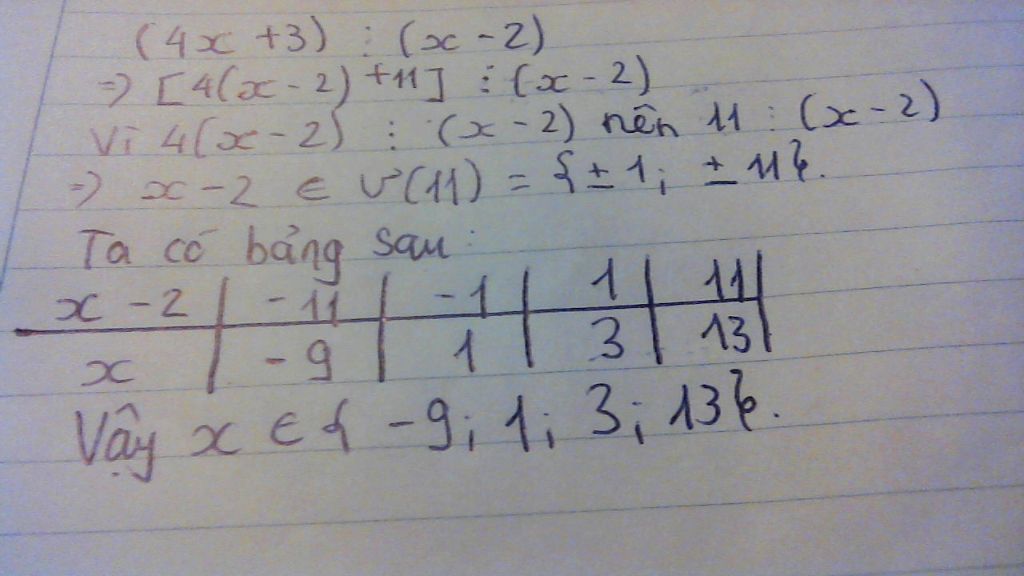 (4x + 3) ⋮ (x - 2)
=> [4(x - 2) + 11] ⋮ (x - 2)
Vì 4(x - 2) ⋮ (x - 2) nên 11 ⋮ (x - 2)
=> x - 2 ∈ Ư(11) = {± 1; ± 11}.
Ta có bảng sau:
x - 2 | - 11 | - 1 | 1 | 11 |
x | - 9 | 1 | 3 | 13 |
Vậy x ∈ { - 9; 1; 3; 13}.